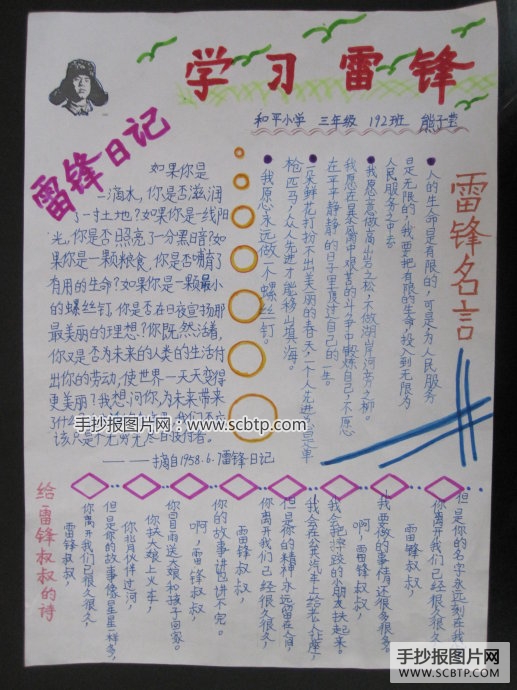 学习雷锋
和平小学 三年级 192班 熊子莹
雷锋日记
如果你是
一滴水，你是否滋润
了一寸土地？如果你是一线阳
光，你是否照亮了一分黑暗？如
果你是一颗粮食，你是否哺育了
有用的生命？如果你是一颗最小
的螺丝钉，你是否在日夜宣扬那
最美丽的理想？你既然活着，
你又是否为未来的人类的生活付
出你的劳动，使世界一天天变得
更美丽？我想问你，为未来带来
了什么
该只是个无穷无尽的支付者。
——摘自1958.6.雷锋日记
雷锋名言
人的生命是有限的，可是，为人民服务
是无限的，我要把有限的生命，投入到无限为
人民服务之中去
我愿意做高山岩石之松，不做湖岸河旁之柳。
我愿在暴风雨中艰苦的斗争中锻炼自己，不愿
在平平静静的日子里度过自己的一生。
一朵鲜花打扮不出美丽的春天，一个人先进总是单
枪匹马，众人先进才能移山填海。
我愿永远做一个螺丝钉。
给雷锋叔叔的诗
雷锋叔叔，
你离开我们已经很久很久，
但是你的故事像星星一样多，
你背同伴过河，
你扶大娘上火车，
你冒雨送大娘和孩子回家。
啊，雷锋叔叔，
你的故事讲也讲不完。
雷锋叔叔，
你离开我们已经很久很久，
但是你的精神永远留在人间，
我会在公共汽车上给老人让座，
我会把摔跤的小朋友扶起来。
啊，雷锋叔叔，
我要做的事情还很多很多。
雷锋叔叔，
你离开我们已经很久很久，
但是你的名字永远刻在我
手抄报图片网：www.scbtp.com
手抄报图片网
WWW.SCBTP.COM